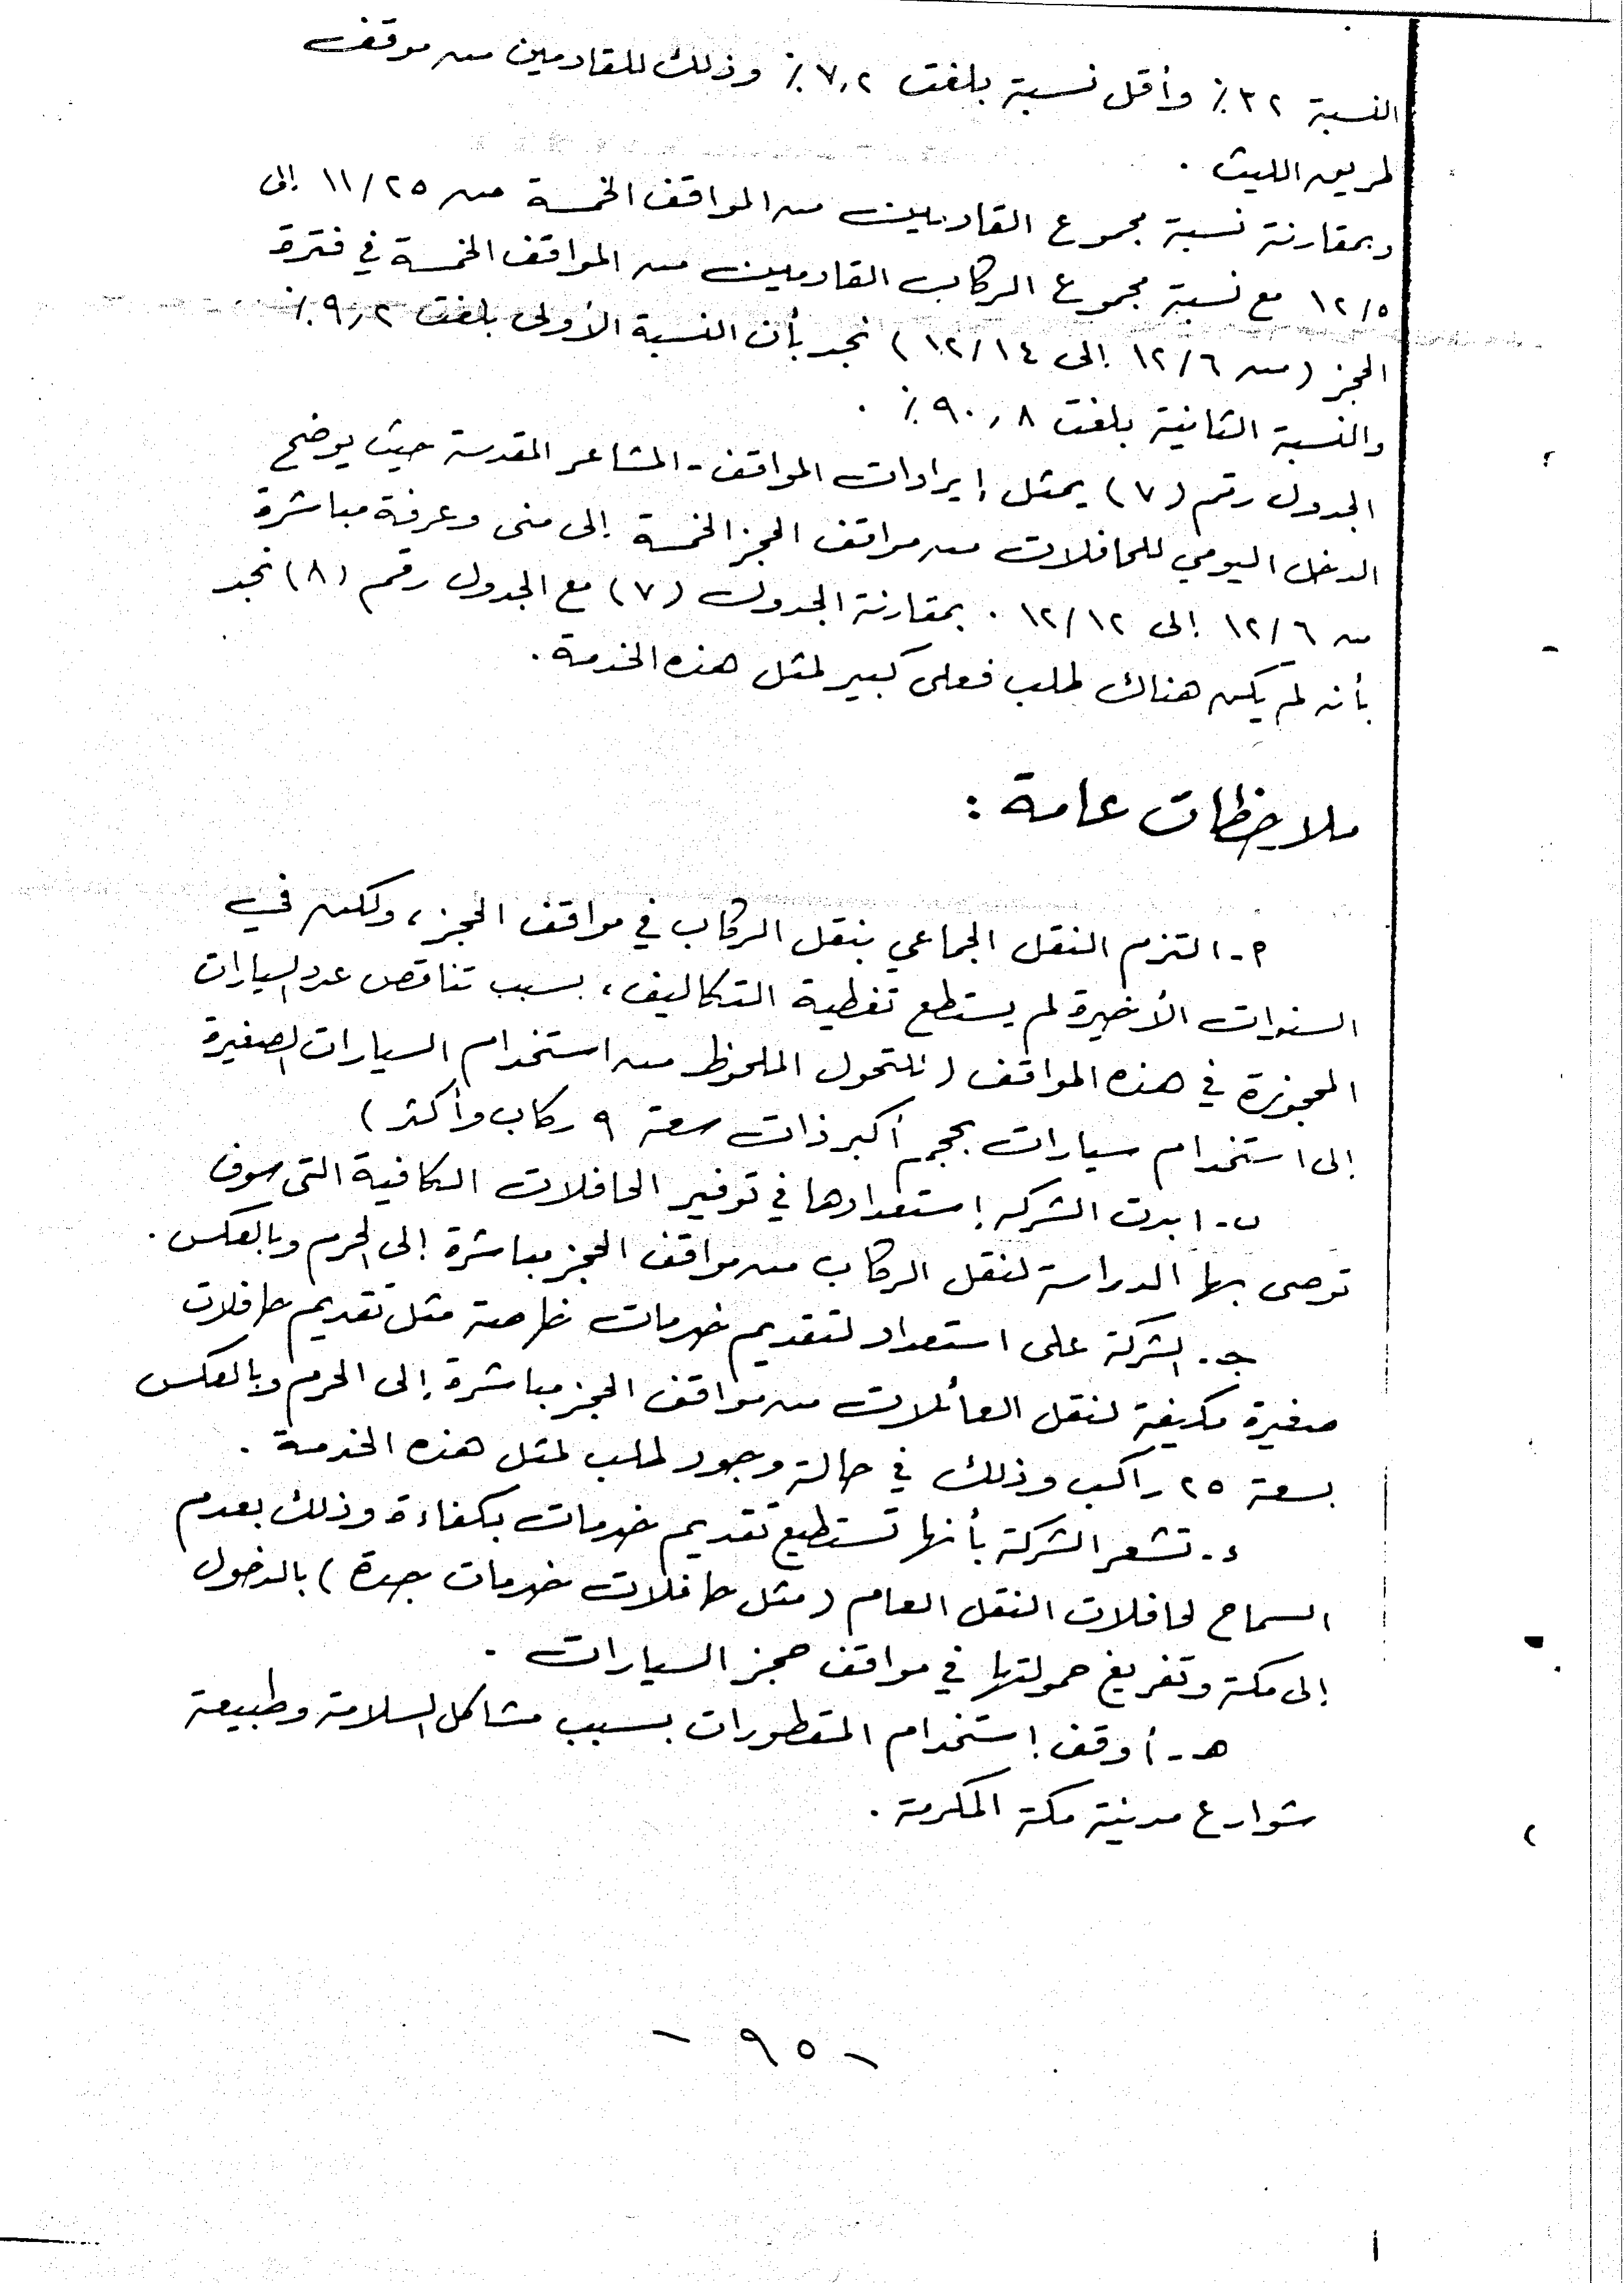 النسبة ٣٢٪ وأقل نسبة بلغت ٧,٢٪ وذلك للقادمين من موقف
طريق الليث .
وبمقارنة نسبة مجموع القادمين من المواقف الخمسة من ١١/٢٥ إلى
١٢/٥ مع نسبة مجموع الركاب القادمين من المواقف الخمسة في فترة
الحجز (من ١٢/٦ إلى ١٢/١٤) نجد بأن النسبة الأولى بلغت ٩,٢٪
والنسبة الثانية بلغت ٩٠,٨٪ .
الجدول رقم (٧) يمثل إيرادات المواقف - المشاعر المقدسة حيث يوضح
الدخل اليومي للحافلات من مواقف الحجز الخمسة إلى منى وعرفة مباشرة
من ١٢/٦ إلى ١٢/١٢ . بمقارنة الجدول (٧) مع الجدول رقم (٨) نجد
بأنه لم يكن هناك طلب فعلى كبير لمثل هذه الخدمة .
ملاحظات عامة :
أ - التزم النقل الجماعي بنقل الركاب في مواقف الحجز ، ولكن في
السنوات الأخيرة لم يستطع تغطية التكاليف ، بسبب تناقص عدد السيارات
المحجوزة في هذه المواقف (للتحول الملحوظ من استخدام السيارات الصغيرة
إلى استخدام سيارات بحجم أكبر ذات سعة ٩ ركاب وأكثر )
ب - ابدت الشركه إستعدادها في توفير الحافلات الكافية التى سوف
توصى بها الدراسة لنقل الركاب من مواقف الحجز مباشرة إلى الحرم وبالعكس .
جـ - الشركة على استعداد لتقديم خدمات خاصة مثل تقديم حافلات
صغيرة مكيفة لنقل العائلات من مواقف الحجز مباشرة إلى الحرم وبالعكس
بسعة ٢٥ راكب وذلك في حالة وجود طلب لمثل هذه الخدمة .
د - تشعر الشركة بأنها تستطيع تقديم خدمات بكفاءة وذلك بعدم
السماح لحافلات النقل العام ( مثل حافلات خدمات جدة ) بالدخول
إلى مكة وتفريغ حمولتها في مواقف حجز السيارات .
هـ - أوقف إستخدام المقطورات بسبب مشاكل السلامة وطبيعة
شوارع مدينة مكة المكرمة .
- ٩٥ -